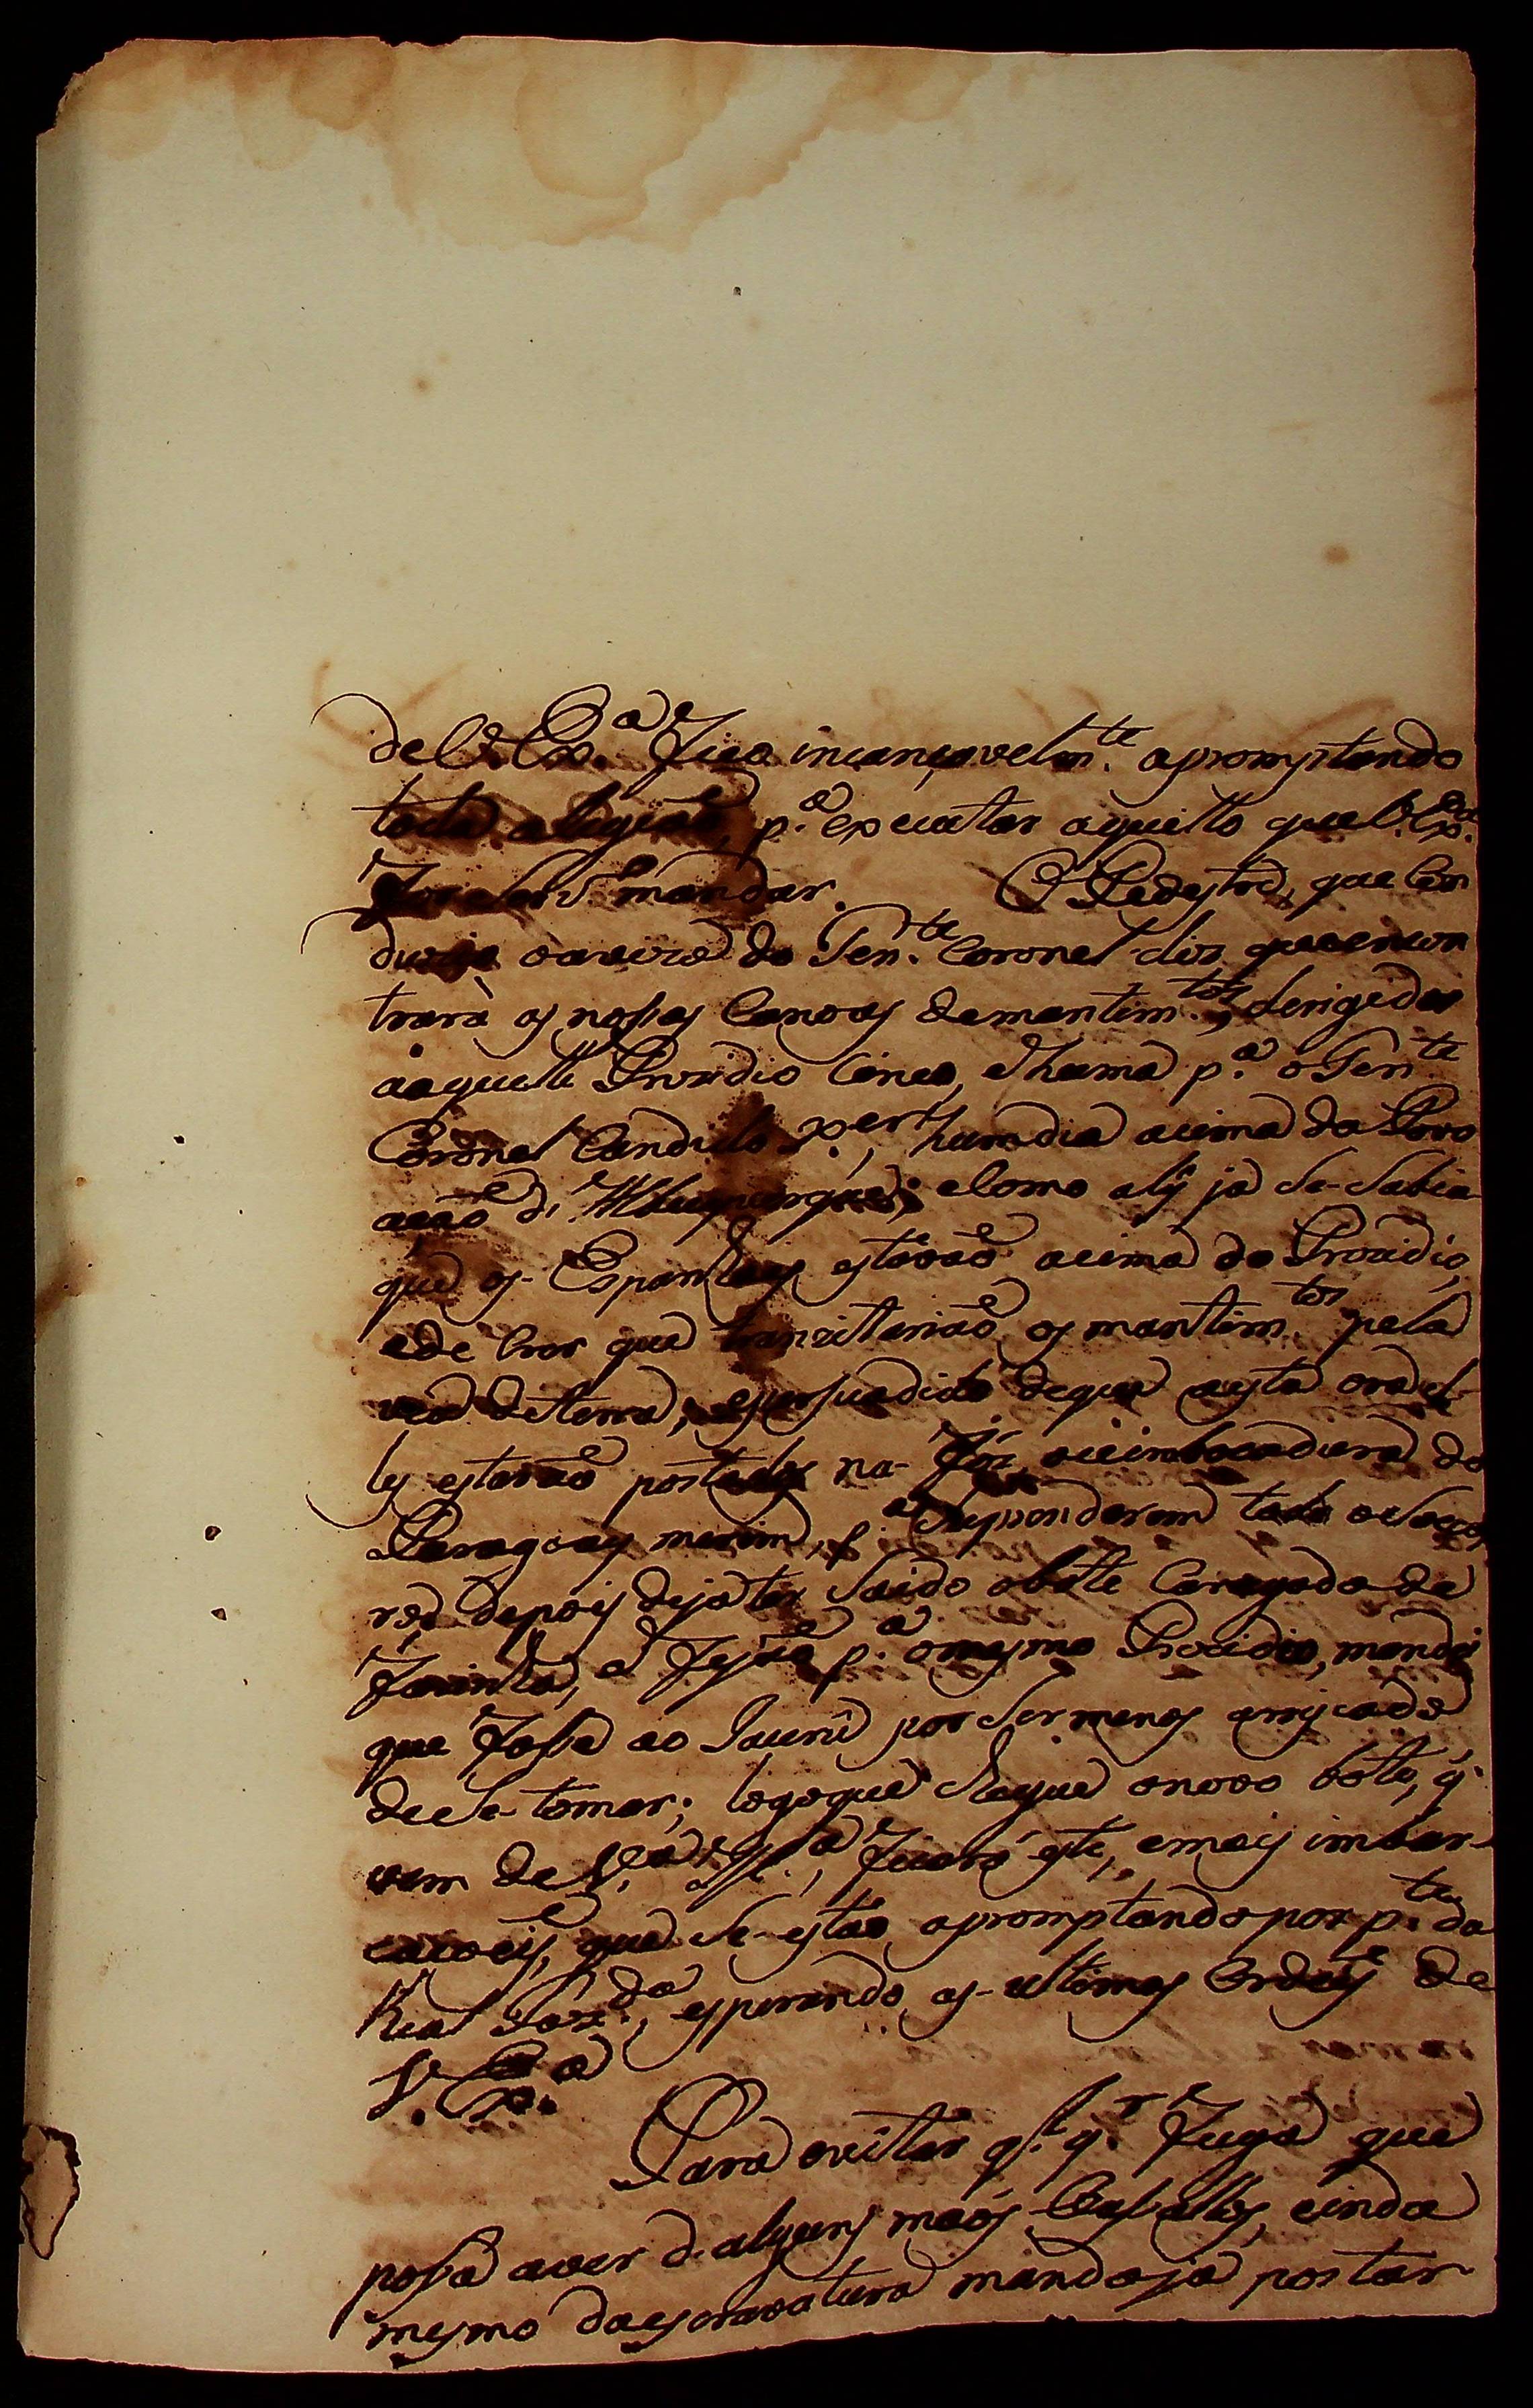 de V. Ex.ª Fico incançavelm.te apromptando
toda a legião, p.ª expecutar aquillo que V. Ex.ª
For Serv.º mandar. O Pedestre, que Con
duzio o avizo do Ten.te Coronel diz que encon
trarà as nossas Canoas de mantim.tos, derigidas
a aquelle Prezidio Cinco, e huma p.ª o Ten.te
Coronel Candido X.er, hum dia acima da Povo
ação d'Albuquerque; e Como aly ja Se Sabia
que os Espanhoes estavão acima do Prezidio,
e de Crer que tranzitarião os mantim.tos pela
via de terra; e persuadido de que a esta ora el-
les estarão postados na Fós, ou imbocadura do
Paragoay merim, p.ª Surprenderem todo o Socor
ro, depois de ja ter Saido o bóte Carregado de
Farinha, e Fejão p.ª o mesmo Prezidio, mandei
que Fosse ao Jaurú por Ser menos arriscado
de Se tomar; logo que Chegue o novo bóte, q̃
vem de V.ª Maria, Ficará este, e mais imbar-
caçoeis, que Se estão apromptando por p.te da
Real Faz.da, esperando as ultimas Ordeñs de
V. Ex.ª
Para evitar q.l q.r Fuga que
possa aver d'alguns maos Vassallos, e inda
mesmo da escravatura mando ja postar